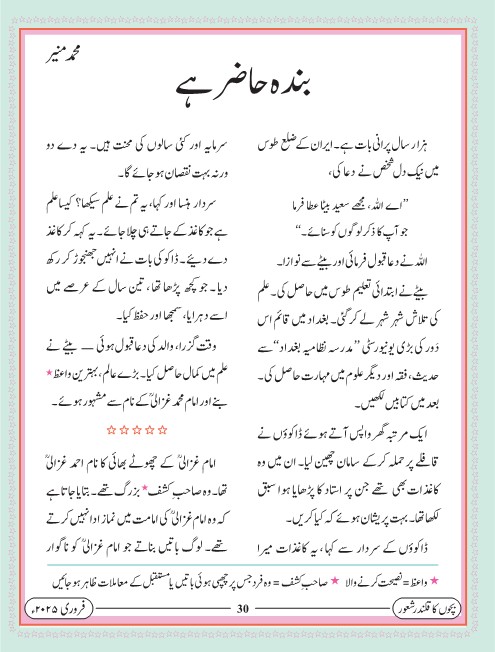 محمد منیر
بندہ حاضر ہے
ہزار سال پرانی بات ہے۔ ایران کے ضلع طوس
میں نیک دل شخص نے دعا کی،
”اے اللہ، مجھے سعید بیٹا عطا فرما
جو آپ کا ذکر لوگوں کو سنائے۔“
اللہ نے دعا قبول فرمائی اور بیٹے سے نوازا۔
بیٹے نے ابتدائی تعلیم طوس میں حاصل کی۔ علم
کی تلاش شہر شہر لے کر گئی۔ بغداد میں قائم اس
دَور کی بڑی یونیورسٹی ”مدرسہ نظامیہ بغداد“ سے
حدیث، فقہ اور دیگر علوم میں مہارت حاصل کی۔
بعد میں کتابیں لکھیں۔
ایک مرتبہ گھر واپس آتے ہوئے ڈاکوؤں نے
قافلے پر حملہ کر کے سامان چھین لیا۔ ان میں وہ
کاغذات بھی تھے جن پر استاد کا پڑھایا ہوا سبق
لکھا تھا۔ بہت پریشان ہوئے کہ کیا کریں۔
ڈاکوؤں کے سردار سے کہا، یہ کاغذات میرا
سرمایہ اور کئی سالوں کی محنت ہیں۔ یہ دے دو
ورنہ بہت نقصان ہو جائے گا۔
سردار ہنسا اور کہا، یہ تم نے علم سیکھا؟ کیسا علم
ہے جو کاغذ کے جاتے ہی چلا جائے۔ یہ کہہ کر کاغذ
دے دیئے۔ ڈاکو کی بات نے انہیں جھنجوڑ کر رکھ
دیا۔ جو کچھ پڑھا تھا، تین سال کے عرصے میں
اسے دہرایا، سمجھا اور حفظ کیا۔
وقت گزرا، والد کی دعا قبول ہوئی — بیٹے نے
علم میں کمال حاصل کیا۔ بڑے عالم، بہترین واعظ*
بنے اور امام محمد غزالیؒ کے نام سے مشہور ہوئے۔
☆☆☆☆☆
امام غزالیؒ کے چھوٹے بھائی کا نام احمد غزالیؒ
تھا۔ وہ صاحبِ کشف* بزرگ تھے۔ بتایا جاتا ہے
کہ وہ امام غزالیؒ کی امامت میں نماز ادا نہیں کرتے
تھے۔ لوگ باتیں بناتے جو امام غزالیؒ کو ناگوار
* واعظ = نصیحت کرنے والا * صاحبِ کشف = وہ فرد جس پر چھپی ہوئی باتیں یا مستقبل کے معاملات ظاہر ہو جائیں
بچوں کا قلندر شعور
30
فروری ۲۰۲۵ء